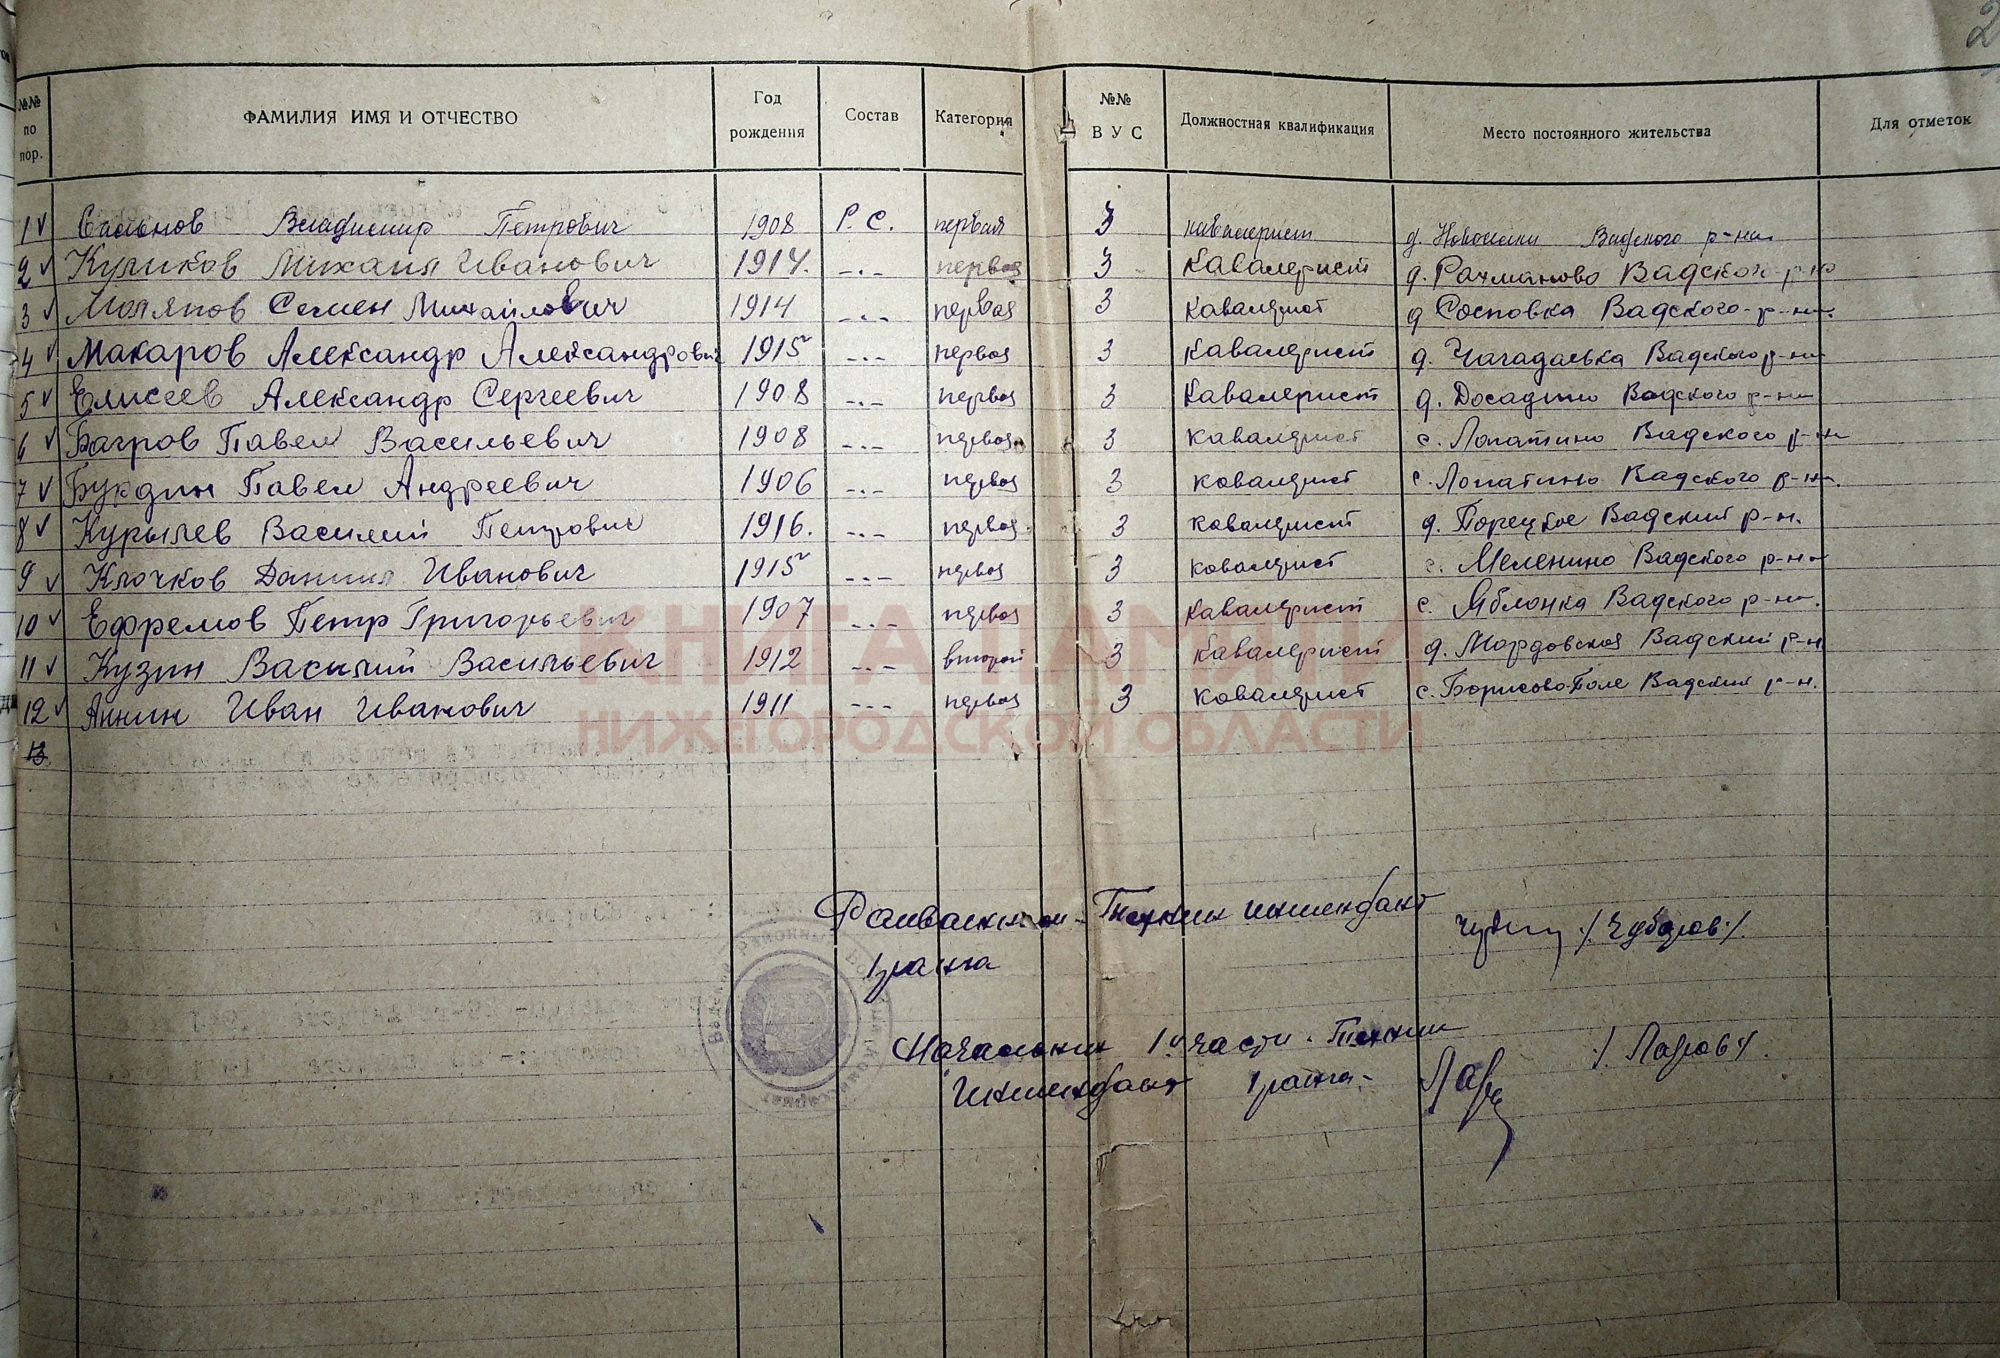 2
№№ по пор. ФАМИЛИЯ ИМЯ И ОТЧЕСТВО Год рождения Состав Категория №№ В У С Должностная квалификация Место постоянного жительства Для отметок
1 Владимир Петрович 1908 Р. С. первая 3 кавалерист д. Вадского р-на
2 Куликов Михаил Иванович 1914. -"- первая 3 Кавалерист д. Рахманово Вадского р-на
3 Семен Михайлович 1914 -"- первая 3 Кавалерист д Сосновка Вадского р-на.
4 Макаров Александр Александрович 1915 -"- первая 3 Кавалерист д. Вадского р-на
5 Елисеев Александр Сергеевич 1908 -"- первая 3 Кавалерист д. Досадино Вадского р-на
6 Багров Павел Васильевич 1908 -"- первая 3 кавалерист с. Лопатино Вадского р-на
7 Букдин Павел Андреевич 1906 -"- первая 3 кавалерист с. Лопатино Вадского р-на.
8 Курылев Василий Петрович 1916. -"- первая 3 кавалерист д. Порецкое Вадский р-н.
9 Клочков Даниил Иванович 1915 -"- первая 3 кавалерист с. Меленино Вадского р-на
10 Ефремов Петр Григорьевич 1907 -"- первая 3 Кавалерист с. Яблонка Вадского р-на.
11 Кузин Василий Васильевич 1912 -"- второй 3 Кавалерист д. Мордовская Вадский р-н
12 Аннин Иван Иванович 1911 -"- первая 3 кавалерист с. Борисово-Поле Вадский р-н.
13
КНИГА ПАМЯТИ
НИЖЕГОРОДСКОЙ ОБЛАСТИ
Райвоенком - Техник интендант /. Чубаров ./.
1 ранга
Начальник 1й части. Техник
Интендант 1 ранга. /. Лазарев ./.